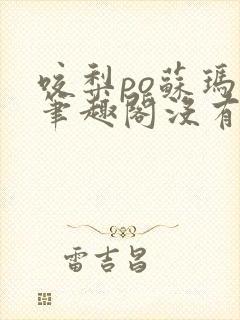 咬梨po蘇瑪
筆趣閣沒有
雷吉昌